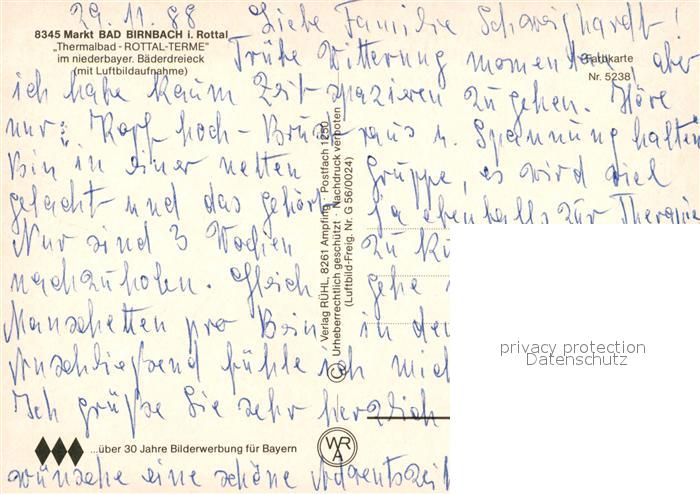 29.11.88
Liebe Familie Schweighardt!
8345 Markt BAD BIRNBACH i. Rottal
„Thermalbad - ROTTAL-TERME"
im niederbayer. Bäderdreieck
(mit Luftbildaufnahme)
Farbkarte
Nr. 5238
Trübe Witterung momentan, aber
ich habe kaum Zeit spazieren zu gehen. Höre
nur: Kopf hoch - Brust raus u. Spannung halten
Bin in einer netten Gruppe, es wird viel
gelacht und das gehört ja ebenfalls zur Therapie
Nur sind 3 Wochen zu
nachzuholen. Gleich gehe
Manschetten pro Bein in den
Anschließend fühle ich mich
Ich grüße Sie sehr herzlich
wünsche eine schöne Adventszeit
Verlag RÜHL, 8261 Ampfing · Postfach 1250
© Urheberrechtlich geschützt · Nachdruck verboten
(Luftbild-Freig. Nr. G 56/0024)
...über 30 Jahre Bilderwerbung für Bayern
WRA
privacy protection
Datenschutz